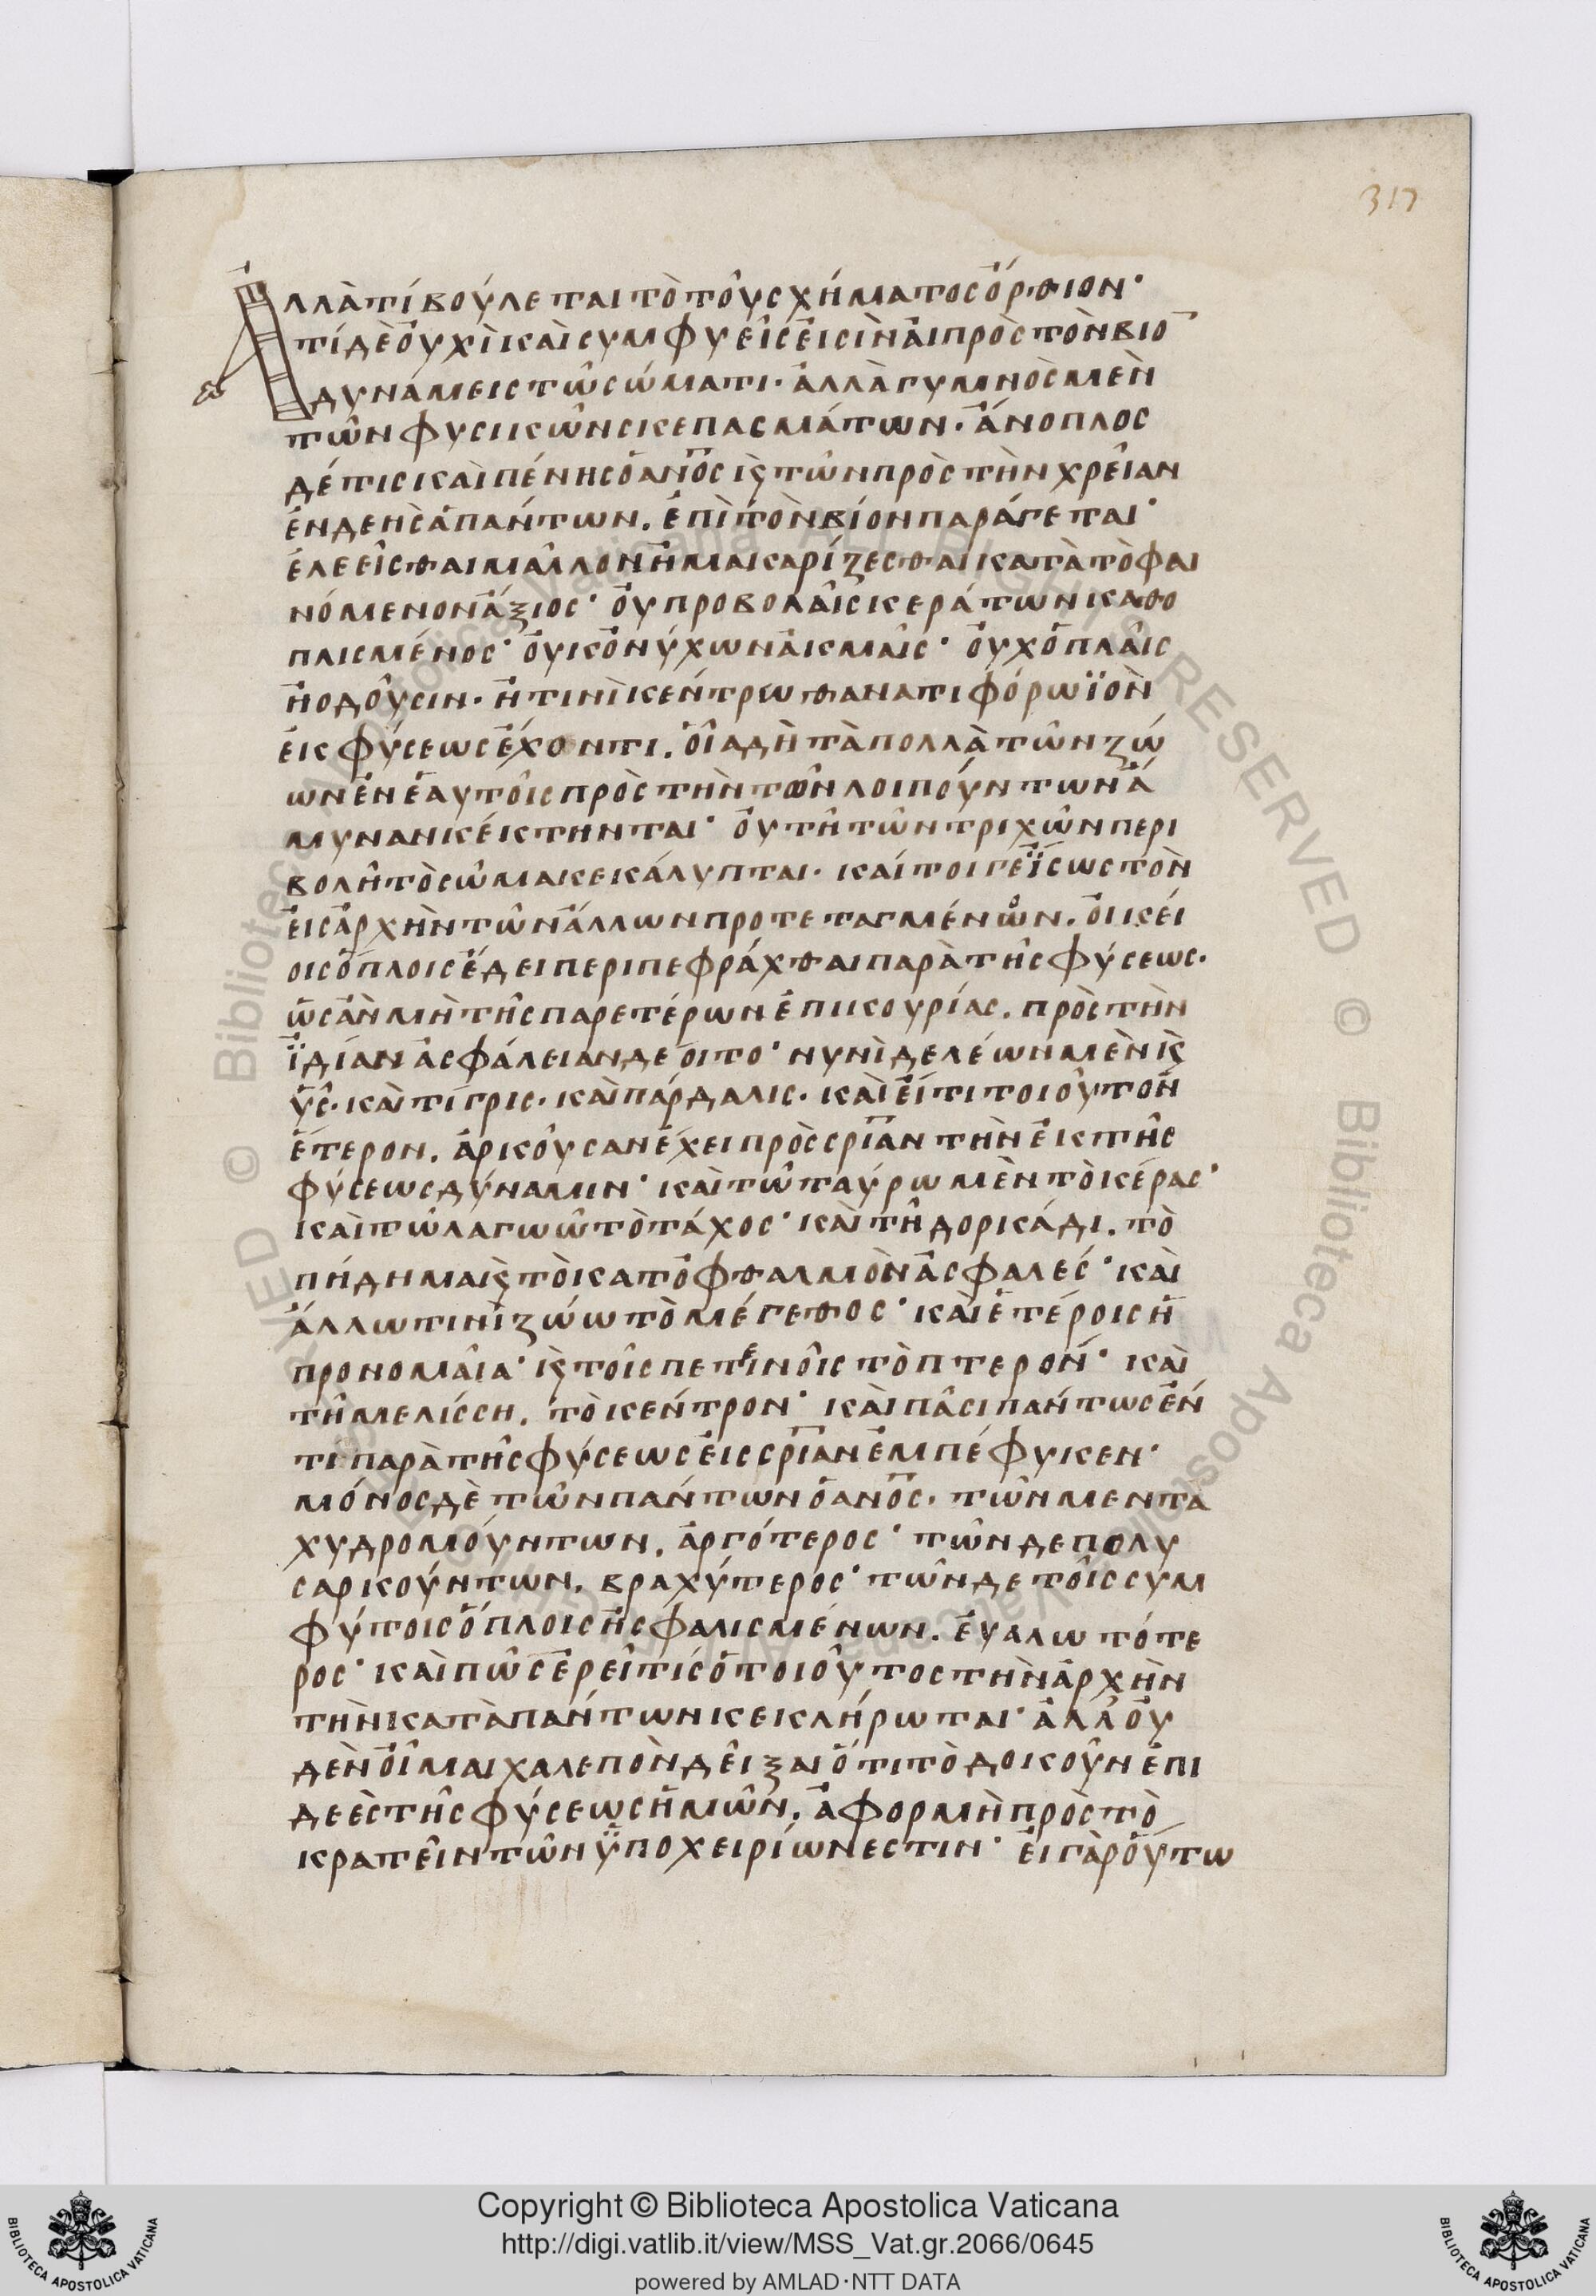 317
Ἀλλὰ τί βούλεται τὸ τοῦ σχήματος ὄρθιον·
τί δὲ οὐχὶ καὶ συμφυεῖς εἰσὶν αἱ πρὸς τὸν βίο̅
δυνάμεις τῶ σώματι· ἀλλὰ γυμνὸς μὲν
τῶν φυσικῶν σκεπασμάτων· ἄνοπλος
δέ τις καὶ πένης ὁ ἀν̅ο̅ς ϗ τῶν πρὸς τὴν χρείαν
ἐνδεὴς ἁπάντων. ἐπὶ τὸν βίον παράγεται·
ἐλεεῖσθαι μᾶλλον ἢ μακαρίζεσθαι κατὰ τὸ φαι
νόμενον ἄξιος· οὐ προβολαῖς κεράτων καθο
πλισμένος· οὐκ ὀνύχων ἀκμαῖς· οὐχ ὁπλαῖς
ἢ ὀδοῦσιν· ἤ τινι κέντρω θανατιφόρω ϊὸν
ἐκ φύσεως ἔχοντι. οἷα δὴ τὰ πολλὰ τῶν ζώ
ων ἐν ἑαυτοῖς πρὸς τὴν τῶν λοιπούντων ἄ
μυναν κέκτηνται· οὐ τῆ τῶν τριχῶν περι
βολῆ τὸ σῶμα κεκάλυπται· καίτοιγε ἴσως τὸν
εἰς ἀρχὴν τῶν ἄλλων προτεταγμένων. οἰκεί
οις ὅπλοις ἔδει περιπεφράχθαι παρὰ τῆς φύσεως·
ὡς ἂν μὴ τῆς παρ ετέρων ἐπικουρίας. πρὸς τὴν
ϊδίαν ἀσφάλειαν δέοιτο· νυνὶ δε λέων μὲν ϗ
ὗς· καὶ τίγρις· καὶ πάρδαλις· καὶ εἴ τι τοιοῦτον
ἕτερον. ἀρκοῦσαν ἔχει πρὸς σρ̅ι̅αν τὴν ἐκ τῆς
φύσεως δύναμιν· καὶ τῶ ταύρω μὲν τὸ κέρας·
καὶ τῶ λαγωῶ τὸ τάχος· καὶ τῆ δορκάδι. τὸ
πήδημα ϗ τὸ κατ ὀφθαλμὸν ἀσφαλές· καὶ
ἄλλω τινὶ ζώω τὸ μέγεθος· καὶ ἑτέροις ἡ
προνομαία· ϗ τοῖς πετεινοῖς τὸ πτερόν· καὶ
τῆ μελίσση. τὸ κέντρον· καὶ πᾶσι πάντως ἕν
τι παρὰ τῆς φύσεως εἰς σρ̅ι̅αν ἐμπέφυκεν·
μόνος δὲ τῶν πάντων ὁ ἀν̅ο̅ς· τῶν μεν τα
χυδρομούντων. ἀργότερος· τῶν δε πολυ
σαρκούντων. βραχύτερος· τῶν δε τοῖς συμ
φύτοις ὅπλοις ἠσφαλισμένων. εὐαλωτότε
ρος· καὶ πῶς ἐρεῖ τίς ὁ τοιοῦτος τὴν ἀρχὴν
τὴν κατὰ πάντων κεκλήρωται· ἀλλ οὐ
δὲν οἶμαι χαλεπὸν δεῖξαι ὅτι τὸ δοκοῦν ἐπι
δεὲς τῆς φύσεως ἡμῶν. ἀφορμὴ πρὸς τὸ
κρατεῖν τῶν ὑποχειρίων ἐστιν· εἰ γὰρ οὕτω
Copyright © Biblioteca Apostolica Vaticana
http://digi.vatlib.it/view/MSS_Vat.gr.2066/0645
powered by AMLAD·NTT DATA
BIBLIOTECA APOSTOLICA VATICANA
BIBLIOTECA APOSTOLICA VATICANA